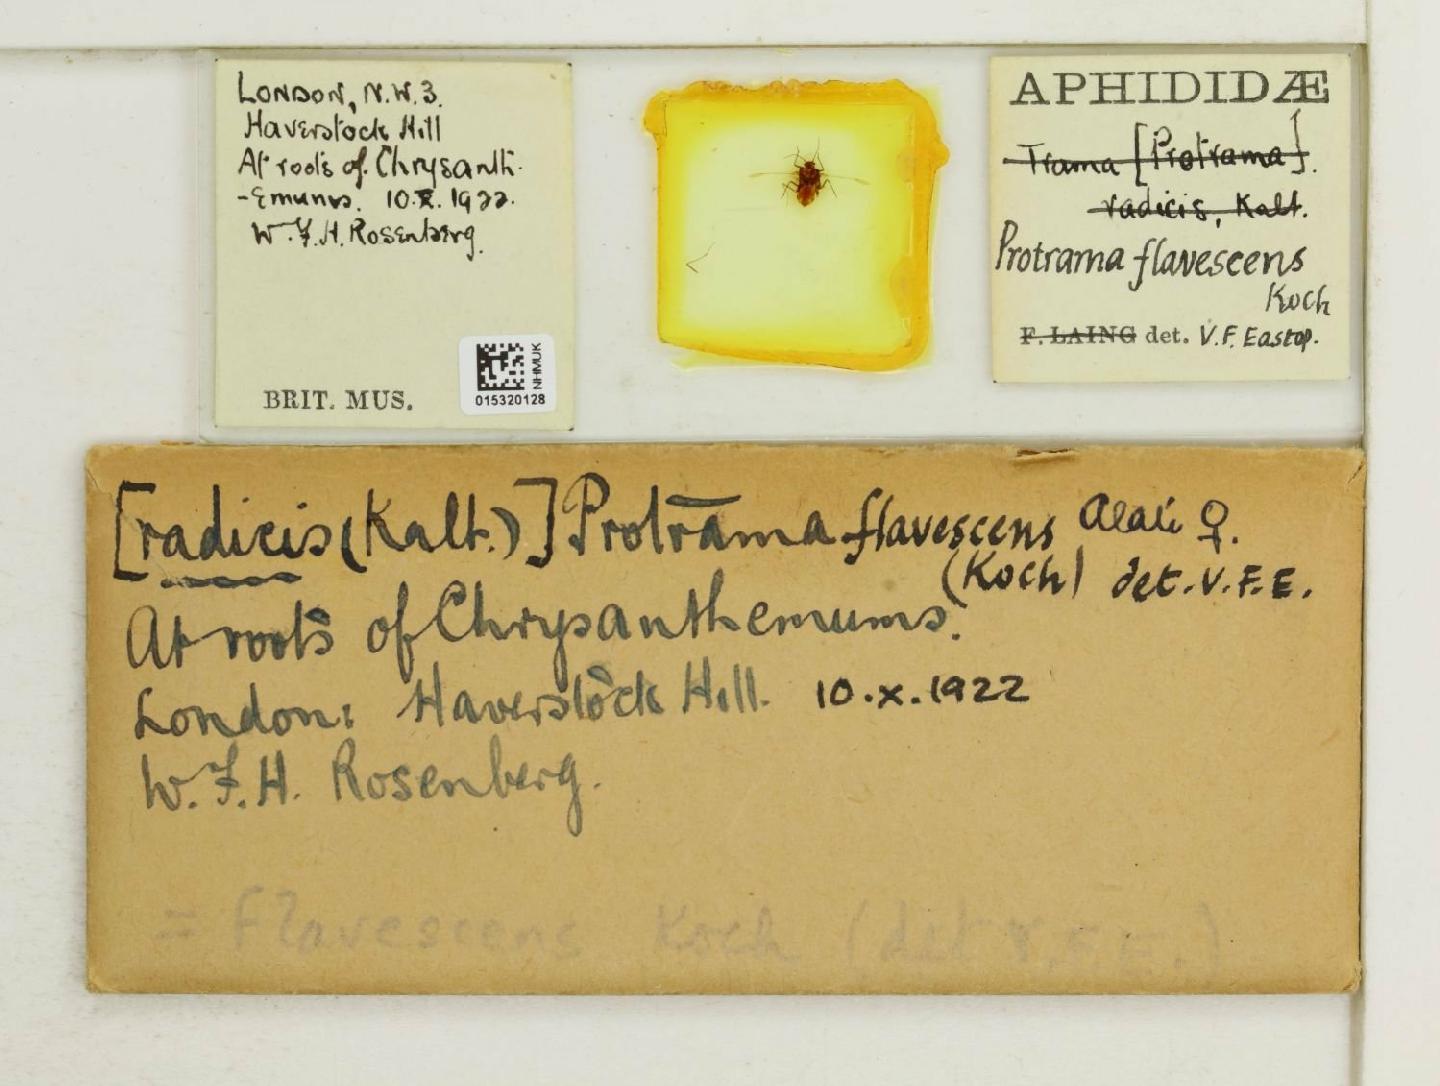 LONDON, N.W.3.
Haverstock Hill
At roots of Chrysanth-
-emums. 10.X.1922.
W.F.H. Rosenberg.
BRIT. MUS.
NHMUK
015320128
APHIDIDÆ
Trama [Protrama].
radicis, Kalt.
Protrama flavescens
Koch
F. LAING det. V.F. Eastop.
[radicis (Kalt.)] Protrama flavescens alate ♀.
(Koch) det. V.F.E.
At roots of Chrysanthemums.
London: Haverstock Hill. 10.x.1922
W.F.H. Rosenberg.
= flavescens Koch (det V.F.E.)